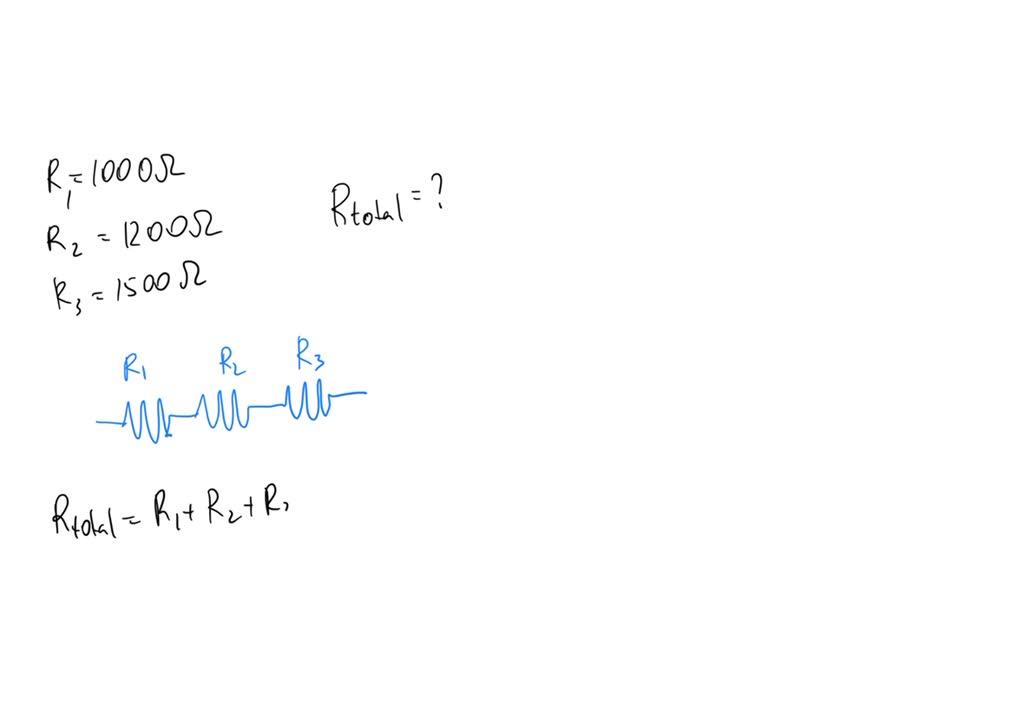 R₁=1000Ω
R₂ = 1200Ω
R₃ = 1500Ω
Rtotal = ?
R₁ R₂ R₃
Rtotal = R₁ + R₂ + R